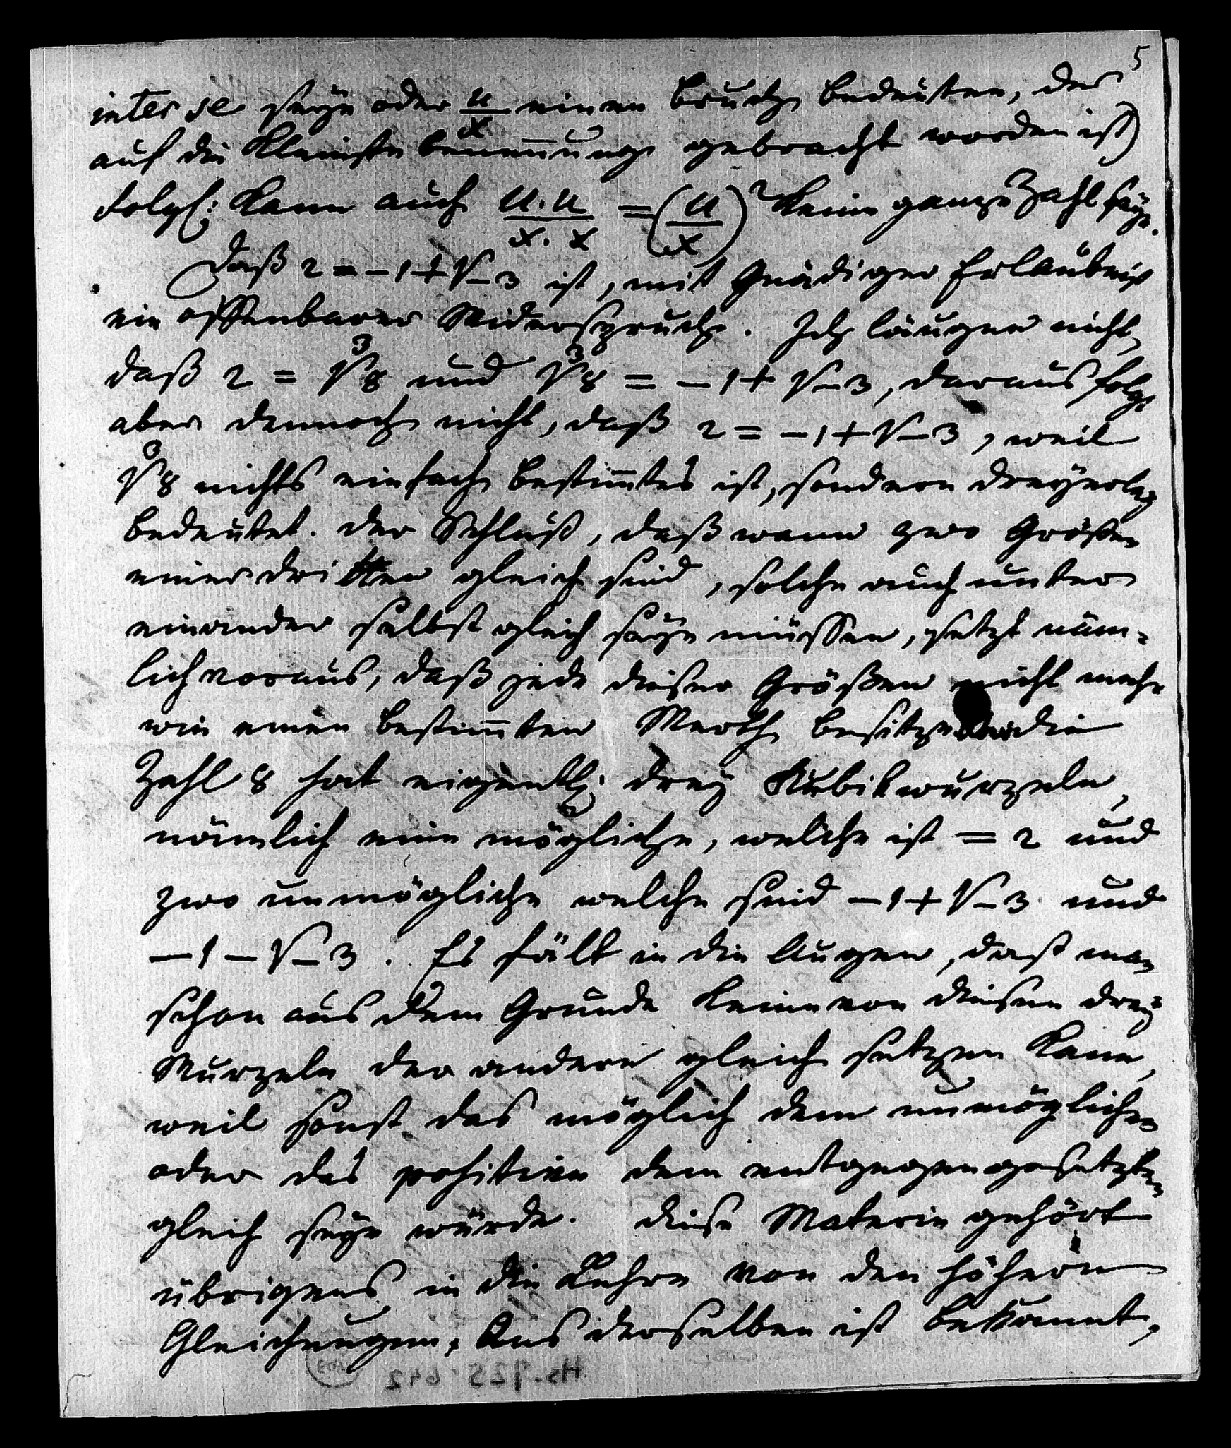 5
inter se seye oder u/x einen Bruch bedeuten, der
auf die kleinste Benennung gebracht worden ist)
folgl: kann auch u.u/x.x = (u/x)² keine ganze Zahl seye.
Daß 2 = −1+√−3 ist, mit Gnädiger Erlaubniß
ein offenbarer Widerspruch. Ich läugne nicht,
daß 2 = ∛8 und ∛8 = −1+√−3, daraus folgt
aber dennoch nicht, daß 2 = −1+√−3, weil
∛8 nichts einfach bestim̅tes ist, sondern dreyerley
bedeutet. Der Schluß, daß wann zwo Größen
einer dritten gleich sind, solche auch unter
einander selbst gleich seye müssen, setzt näm-
lich voraus, daß jede dieser Größen nicht mehr
wie einen bestim̅ten Werth besitze. die
Zahl 8 hat eigentl: drey Kubikwurzeln,
nämlich eine mögliche, welche ist = 2 und
zwo unmögliche welche sind −1+√−3 und
−1−√−3. Es fält in die Augen, daß man
schon aus dem Grunde keine von diesen drey
Wurzeln der andern gleich setzen kann,
weil sonst das möglich dem unmöglichen
oder das positive dem entgegengesetzten
gleich seye würde. diese Materie gehört
übrigens in die Lehre von den höhern
Gleichungen. Aus derselben ist bekannt,
Hs. 725 642